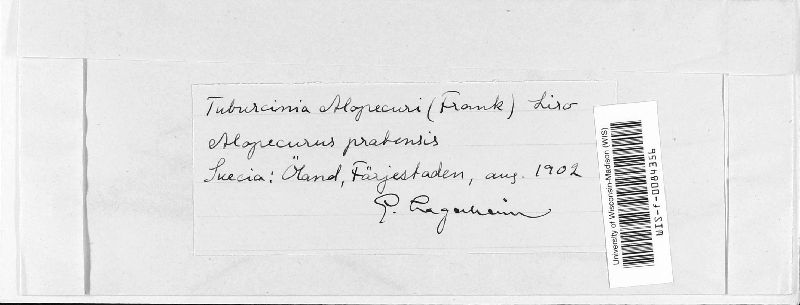 Tuburcinia Alopecuri (Frank) Liro
Alopecurus pratensis
Suecia: Öland, Färjestaden, aug. 1902
G. Lagerheim
University of Wisconsin-Madison (WIS)
WIS-f-0084356